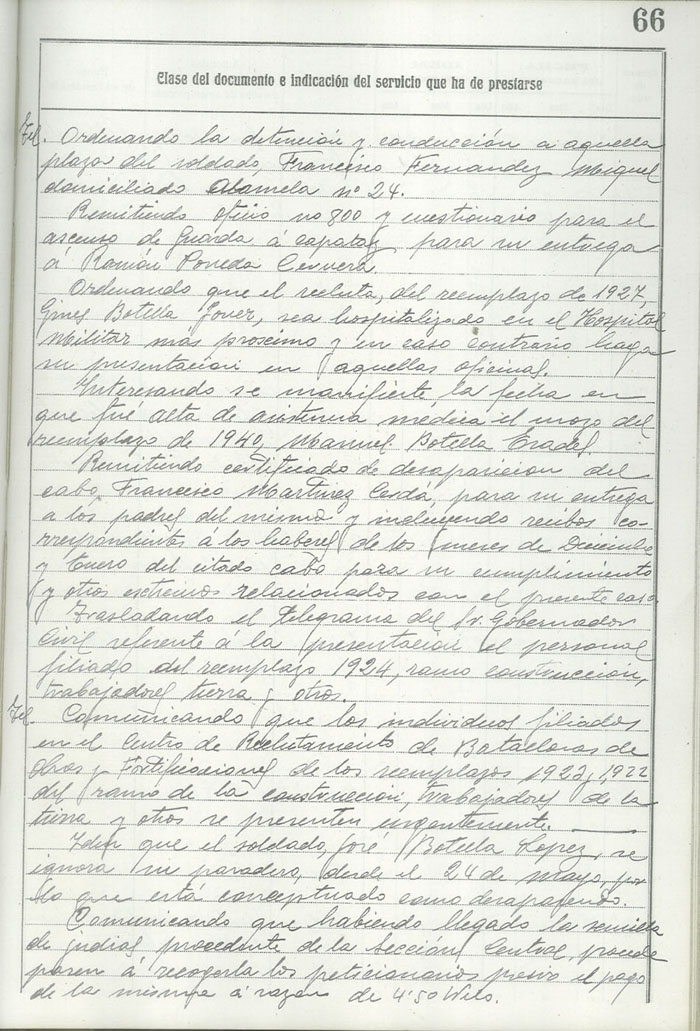 66
Clase del documento e indicación del servicio que ha de prestarse
Tel. Ordenando la detención y conducción a aquella
plaza del soldado, Francisco Fernandez Miquel
domiciliado Alameda nº 24.
Remitiendo oficio nº 800 y cuestionario para el
ascenso de Guarda á capataz para su entrega
á Ramón Poveda Cervera
Ordenando que el recluta, del reemplazo de 1927,
Gines Botella Jover, sea hospitalizado en el Hospital
Militar mas proscimo y en caso contrario haga
su presentación en aquellas oficinas.
Interesando se manifieste la fecha en
que fué alta de asistencia medica el mozo del
reemplazo de 1940, Manuel Botella
Remitiendo certificado de desaparicion del
cabo, Francisco Martinez Cerdá, para su entrega
a los padres del mismo y incluyendo recibos co-
rrespondientes á los haberes de los meses de Diciembre
y Enero del citado cabo para su cumplimiento
y otros estremos relacionados con el presente caso.
Trasladando el telegrama del Sr. Gobernador
Civil referente á la presentación el personal
filiado del reemplazo 1924, ramo construcción,
trabajadores tierra y otros.
Tel. Comunicando que los individuos filiados
en el Centro de Reclutamiento de Batallones de
Obras y Fortificaciones de los reemplazos 1923 y 1922
del ramo de la construcción, trabajadores de la
tierra y otros se presenten urgentemente.
Idem que el soldado, José Botella Lopez, se
ignora su paradero, desde el 24 de mayo, por
lo que está conceptuado como desaparecido.
Comunicando que habiendo llegado la semilla
de judias procedente de la Sección Central, puede
pasen á recogerla los peticionarios previo el pago
de la misma á razon de 4'50 kilo.